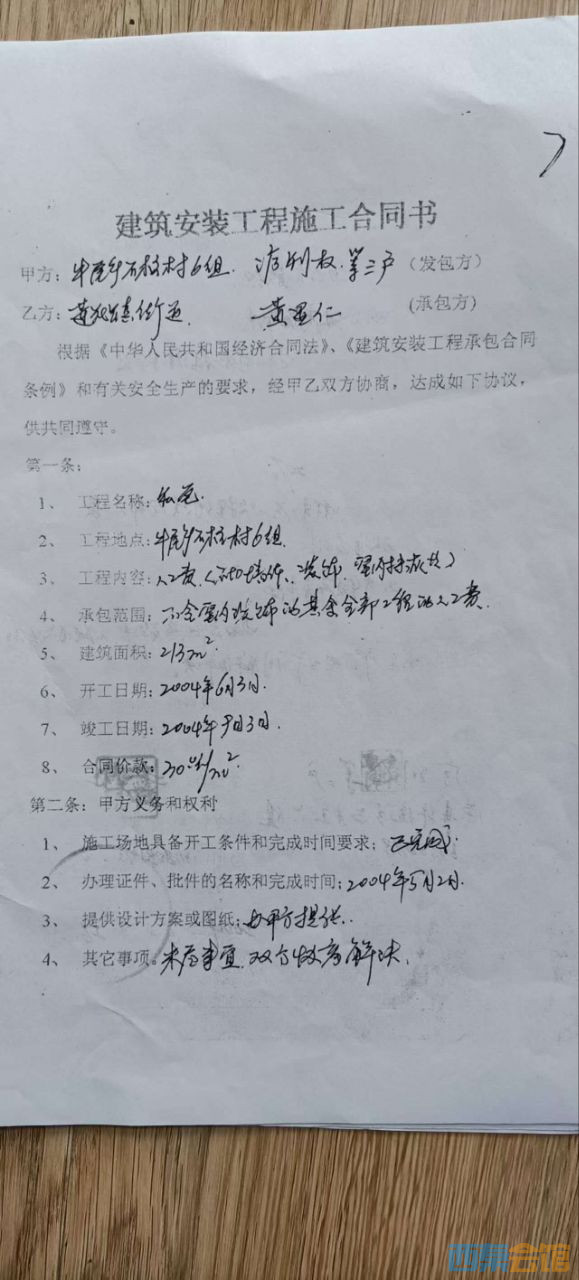 建筑安装工程施工合同书
甲方：牛尾乡石柱村6组. 第三户（发包方）
乙方： 黄 仁 （承包方）
根据《中华人民共和国经济合同法》、《建筑安装工程承包合同
条例》和有关安全生产的要求，经甲乙双方协商，达成如下协议，
供共同遵守。
第一条：
1、 工程名称：
2、 工程地点：牛尾乡石柱村6组
3、 工程内容：人工费
4、 承包范围：不含室内装饰的其余全部工程的人工费.
5、 建筑面积：213m²
6、 开工日期：2004年6月3日.
7、 竣工日期：2004年9月3日.
8、 合同价款：30元/m²
第二条：甲方义务和权利
1、 施工场地具备开工条件和完成时间要求：已完成.
2、 办理证件、批件的名称和完成时间：2004年5月2日.
3、 提供设计方案或图纸：由甲方提供.
4、 其它事项。未尽事宜.双方协商解决.
西祠会馆